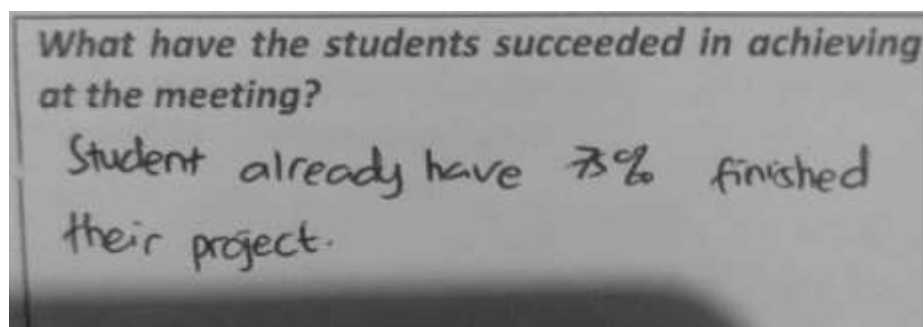 What have the students succeeded in achieving
at the meeting?
Student already have 75% finished
their project.